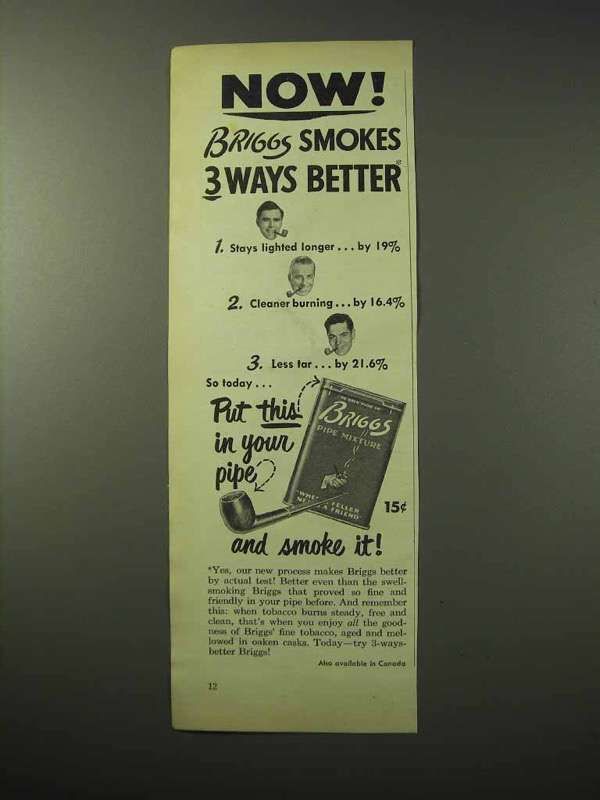 NOW!
BRIGGS SMOKES
3 WAYS BETTER*
1. Stays lighted longer... by 19%
2. Cleaner burning... by 16.4%
3. Less tar... by 21.6%
So today...
Put this
in your
pipe
BRIGGS
PIPE MIXTURE
"WHEN A FELLER
NEEDS A FRIEND"
15¢
and smoke it!
*Yes, our new process makes Briggs better
by actual test! Better even than the swell-
smoking Briggs that proved so fine and
friendly in your pipe before. And remember
this: when tobacco burns steady, free and
clean, that's when you enjoy all the good-
ness of Briggs' fine tobacco, aged and mel-
lowed in oaken casks. Today—try 3-ways-
better Briggs!
Also available in Canada
12